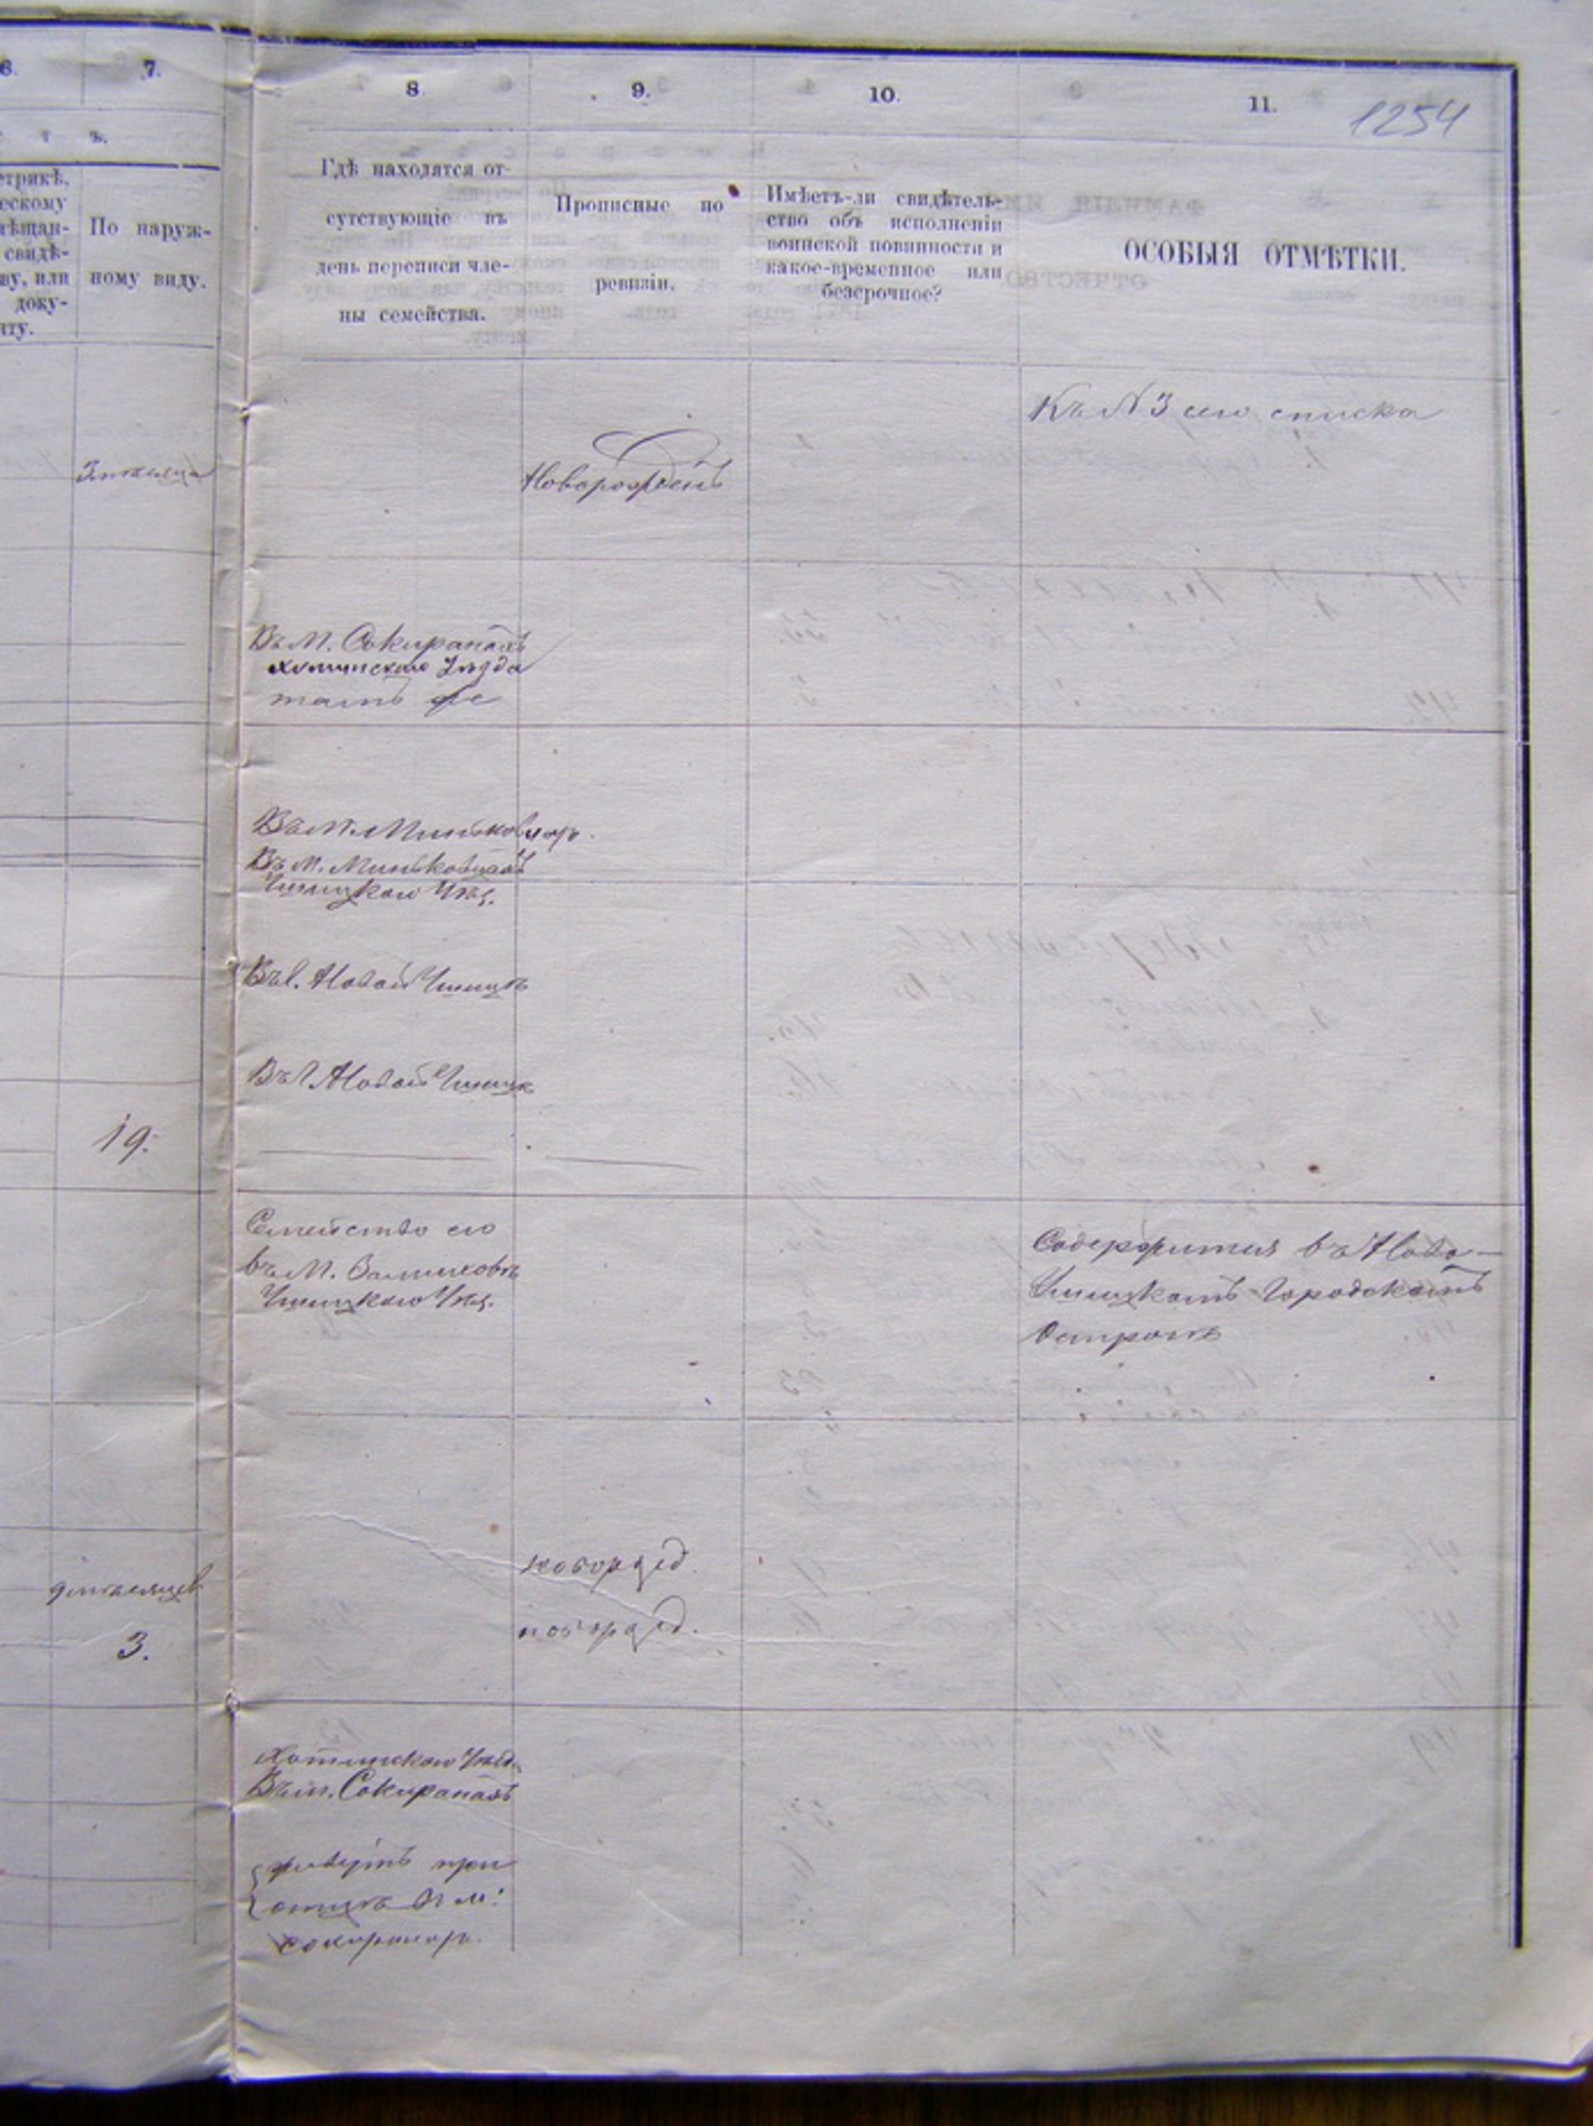 6.
7.
8.
9.
10.
11.
1254
т ъ.
етрикѣ,
ескому
мѣщан-
свидѣ-
ву, или
доку-
нту.
По наруж-
ному виду.
Гдѣ находятся от-
сутствующіе въ
день переписи чле-
ны семейства.
Прописные по
ревизіи.
Имѣетъ-ли свидѣтель-
ство объ исполненіи
воинской повинности и
какое-временное или
безсрочное?
ОСОБЫЯ ОТМѢТКИ.
Къ N 3 сего списка
3 мѣсяца
Новорожденъ
Въ М. Сокиранахъ
Хотинскаго Уѣзда
тамъ же
Въ М. Миньковцахъ.
Въ М. Миньковцахъ
Ушицкаго Уѣз.
Въ г. Новой Ушицѣ
Въ г. Новой Ушицѣ
19.
Семейство его
въ М.
Ушицкаго Уѣз.
Содержится въ Ново-
Ушицкомъ Городскомъ
Острогѣ
9 мѣсяцев
3.
Хотинскаго Уѣзд.
Въ м. Сокиранахъ
живутъ при
отцѣ въ м:
Сокиранах.